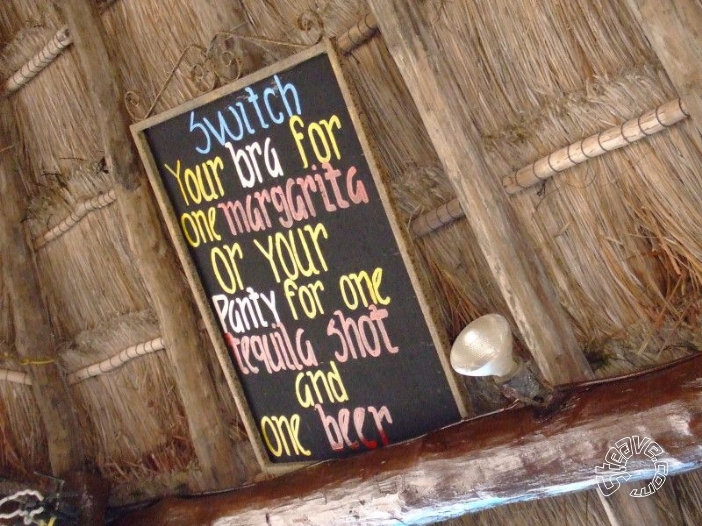 Switch
Your bra for
one margarita
or your
Panty for one
tequila shot
and
one beer
cteave.com